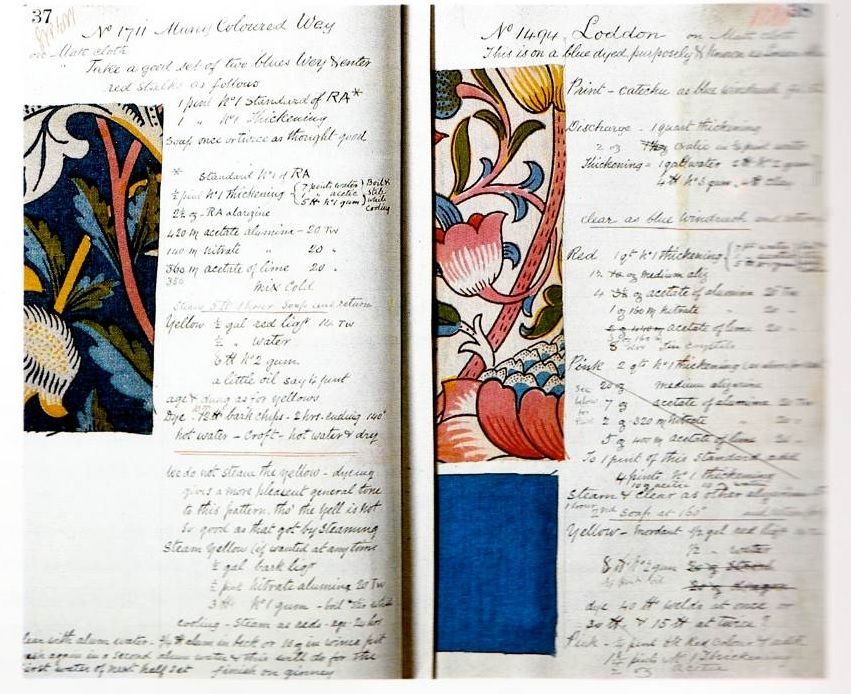 37
No 1711 Many Coloured Way
on Matt cloth
" Take a good set of two blues Wey & enter
red stalks as follows
1 pint No 1 Standard of RA*
1 " No 1 Thickening
Soap once or twice as thought good
* Standard No 1 RA
½ pint No 1 thickening { 7 pints water
1 " acetic
5 lb No 1 gum } Boil &
stir
while
cooling
2½ oz RA alarzine
420 m acetate alumina - 20 Tw
140 m nitrate " 20 "
360 m acetate of lime 20 "
350 mix cold
Steam 5 lb 1 hour Soap and return
Yellow ½ gal red liqr 14 Tw
½ " water
6 lb No 2 gum
a little oil say ¼ pint
age & dung as for yellows
Dye 12 lb bark chips - 2 hrs. ending 140°
hot water - Croft - hot water & dry
We do not steam the yellow - dyeing
gives a more pleasent general tone
to this pattern. tho' the yell is not
so good as that got by steaming
Steam Yellow (if wanted at any time
½ gal bark liqr
½ pint Nitrate alumina 20 Tw
3 lb No 1 gum - boil & stir while
cooling - steam as reds - age - 24 hrs
clear with alum water - alum in beck or in wince pit
again in a second alum water & this will do for the
first water of next half set finish on ginney
38
No 1494, Loddon on Matt cloth
This is on a blue dyed purposely & known as
Print - catechu as blue windrush
Discharge - 1 quart thickening
2 oz oxalic in ½ pint water
Thickening = 1 gal water 2 lb No 2 gum
4 lb No 3 gum
clear as blue windrush and return
Red 1 qt No 1 thickening
12 oz medium aliz
4 oz acetate of alumina 25 Tw
1 oz 160 m nitrate " 20 "
acetate of lime 20 "
Tin Crystals
Pink 2 qts No 1 thickening (as above for red
see
below
for
20 oz medium alizarine
7 oz acetate of alumina 20 Tw
2 oz 320 m nitrate " 20 "
5 oz 400 m acetate of lime 20 "
To 1 pint of this Standard add
4 pints No 1 thickening
Steam & clear as other
1 hour 2nd Soap at 160°
Yellow - Mordant ½ gal red liqr
½ " water
8 lb No 2 gum
dye 40 lb welds at once or
30 lb & 15 lb at twice?
Pink - ½ pint of Red Colour & add
1½ pints No 1 Thickening
½ oz acetic